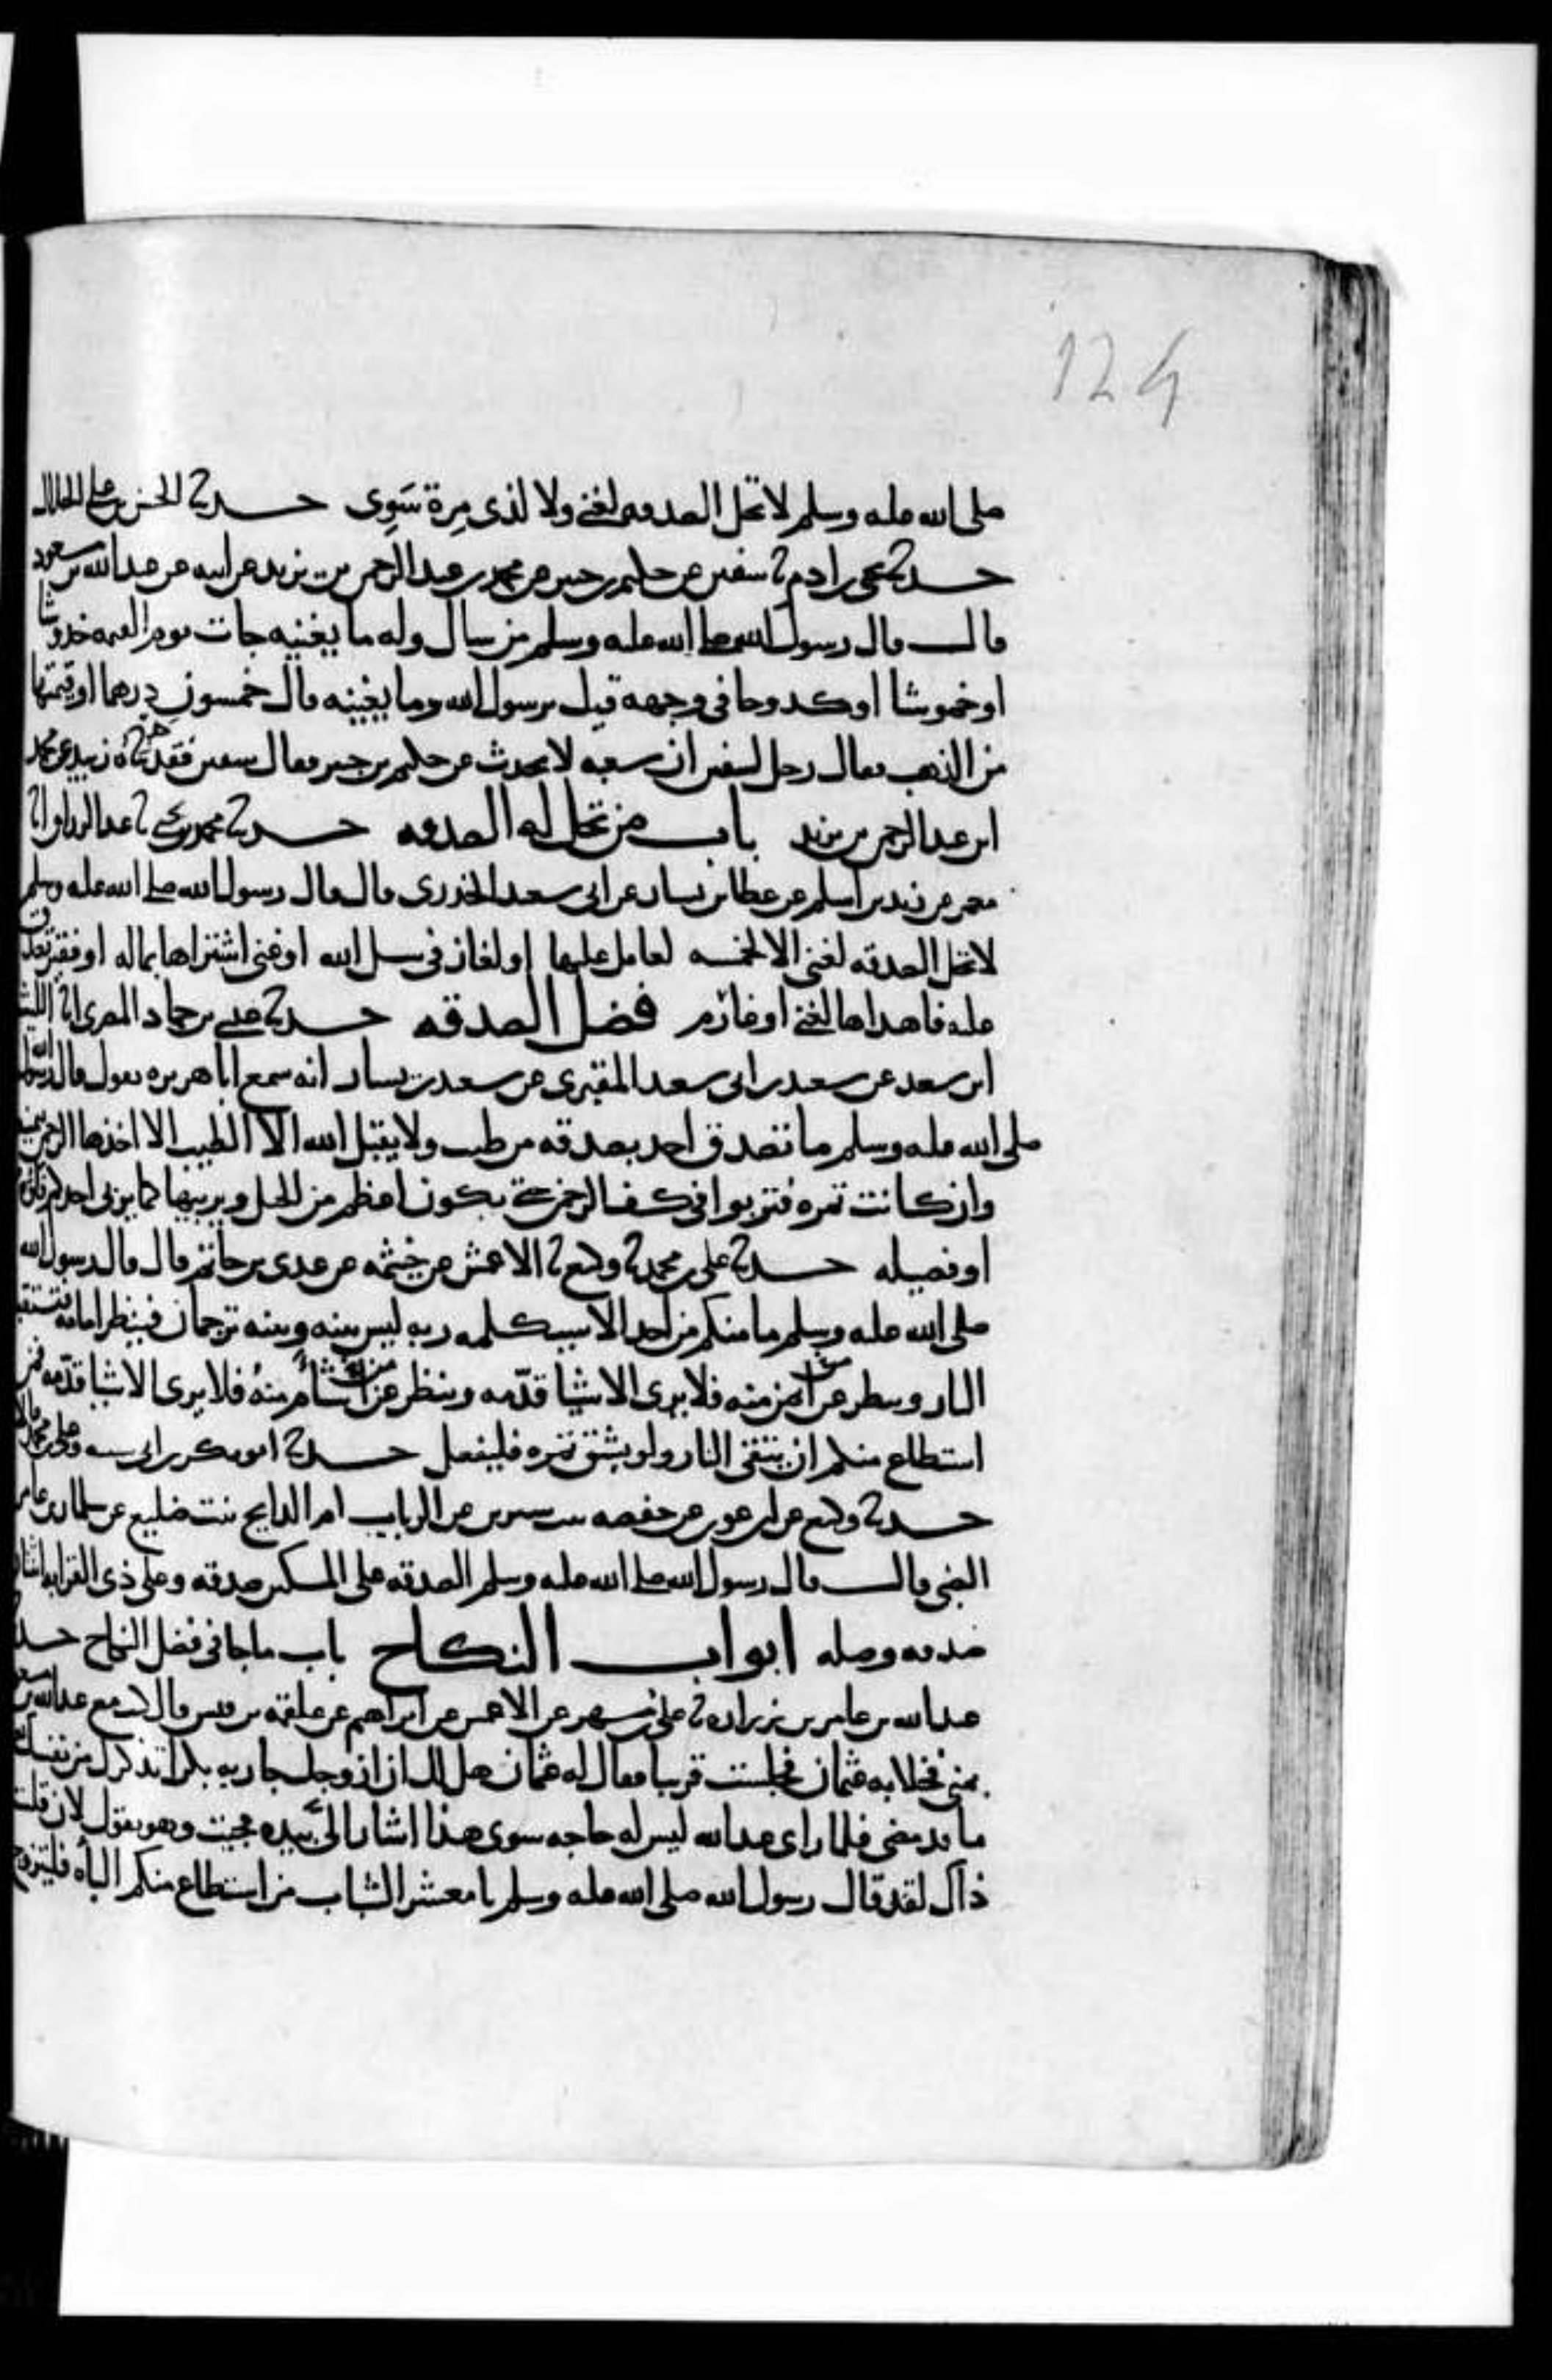 124
صلى الله عليه وسلم لا تحل الصدقة لغني ولا لذي مِرة سَوِى حدثنا الحسن بن علي الخلال
حدثنا يحيى بن ادم ثنا سفين عن حكيم بن جبير عن محمد بن عبد الرحمن بن يزيد عن ابيه عن عبد الله بن مسعود
قال قال رسول الله صلى الله عليه وسلم من سال وله ما يغنيه جات يوم القيمه خدوشا
او خموشا او كدوحا في وجهه قيل يرسول الله وما يغنيه قال خمسون درهما او قيمتها
من الذهب فقال رجل لسفين ان شعبه لا يحدث عن حكيم بن جبير فقال سفين فقد حدثناه زبيد عن محمد
ابن عبد الرحمن بن يزيد باب من تحل له الصدقه حدثنا محمد بن يحيى ثنا عبد الرزاق انا
معمر عن زيد بن اسلم عن عطا بن يسار عن ابي سعيد الخدري قال قال رسول الله صلى الله عليه وسلم
لا تحل الصدقه لغني الا لخمسه لعامل عليها او لغاز في سبيل الله او غني اشتراها بماله او فقير تصدق
عليه فاهداها لغني او غارم فضل الصدقه حدثنا عيسى بن حماد المصرى انا الليث
ابن سعد عن سعيد بن ابي سعيد المقبرى عن سعيد بن يسار انه سمع ابا هريره يقول قال رسول الله
صلى الله عليه وسلم ما تصدق احد بصدقه من طيب ولا يقبل الله الا الطيب الا اخذها الرحمن بيمينه
وان كانت تمره فتربوا في كف الرحمن حتى تكون اعظم من الجبل ويربيها كما يربي احدكم فلوه
او فصيله حدثنا علي بن محمد ثنا وكيع ثنا الاعمش عن خيثمه عن عدى بن حاتم قال قال رسول الله
صلى الله عليه وسلم ما منكم من احد الا سيكلمه ربه ليس بينه وبينه ترجمان فينظر امامه فتستقبله
النار وينظر عن ايمن منه فلا يرى الا شيا قدّمه وينظر عن اشأم منهُ فلا يرى الا شيا قدّمه فمن
استطاع منكم ان يتقي النار ولو بشق تمره فليفعل حدثنا ابو بكر بن ابي شيبه وعلي بن محمد قالا
حدثنا وكيع عن ابن عون عن حفصه بنت سيرين عن الرباب ام الرايح بنت ضليع عن سلمان بن عامر
الضبي قال قال رسول الله صلى الله عليه وسلم الصدقه على المسكين صدقه وعلى ذى القرابه اثنتان
صدقه وصله ابواب النكاح باب ما جا في فضل النكاح حدثنا
عبد الله بن عامر بن زراره ثنا علي بن مسهر عن الاعمش عن ابراهيم عن علقمه بن قيس قال كنت مع عبد الله بن مسعود
بمنى فخلا به عثمان فجلست قريبا فقال له عثمان هل لك ان ازوجك جاريه بكرا تذكرك من نفسك
ما قد مضى فلما راى عبد الله ليس له حاجه سوى هذا اشار اليَّ بيده فجيت وهو يقول لان قلت
ذاك لقد قال رسول الله صلى الله عليه وسلم يا معشر الشباب من استطاع منكم البأه فليتزوج